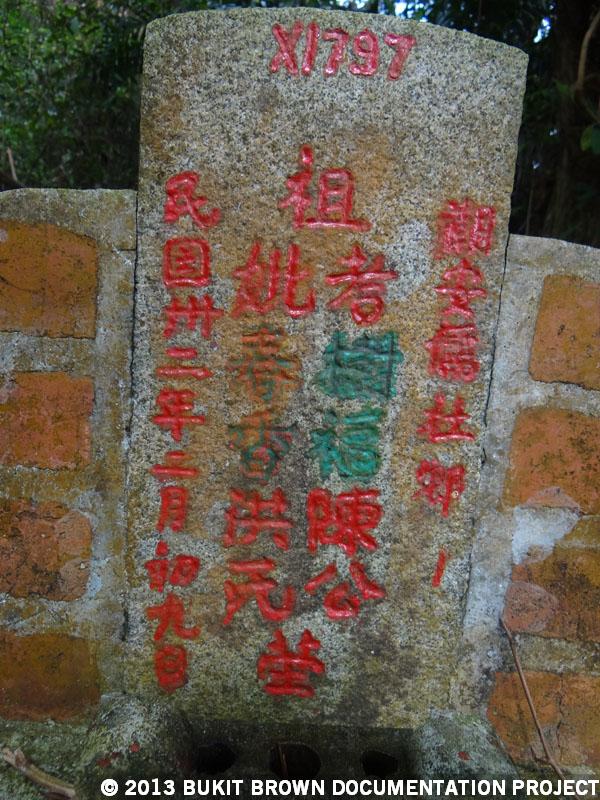 X1797
安社鄉
祖
考樹福陳公
妣春香洪氏
茔
民国卅二年二月初九日
© 2013 BUKIT BROWN DOCUMENTATION PROJECT